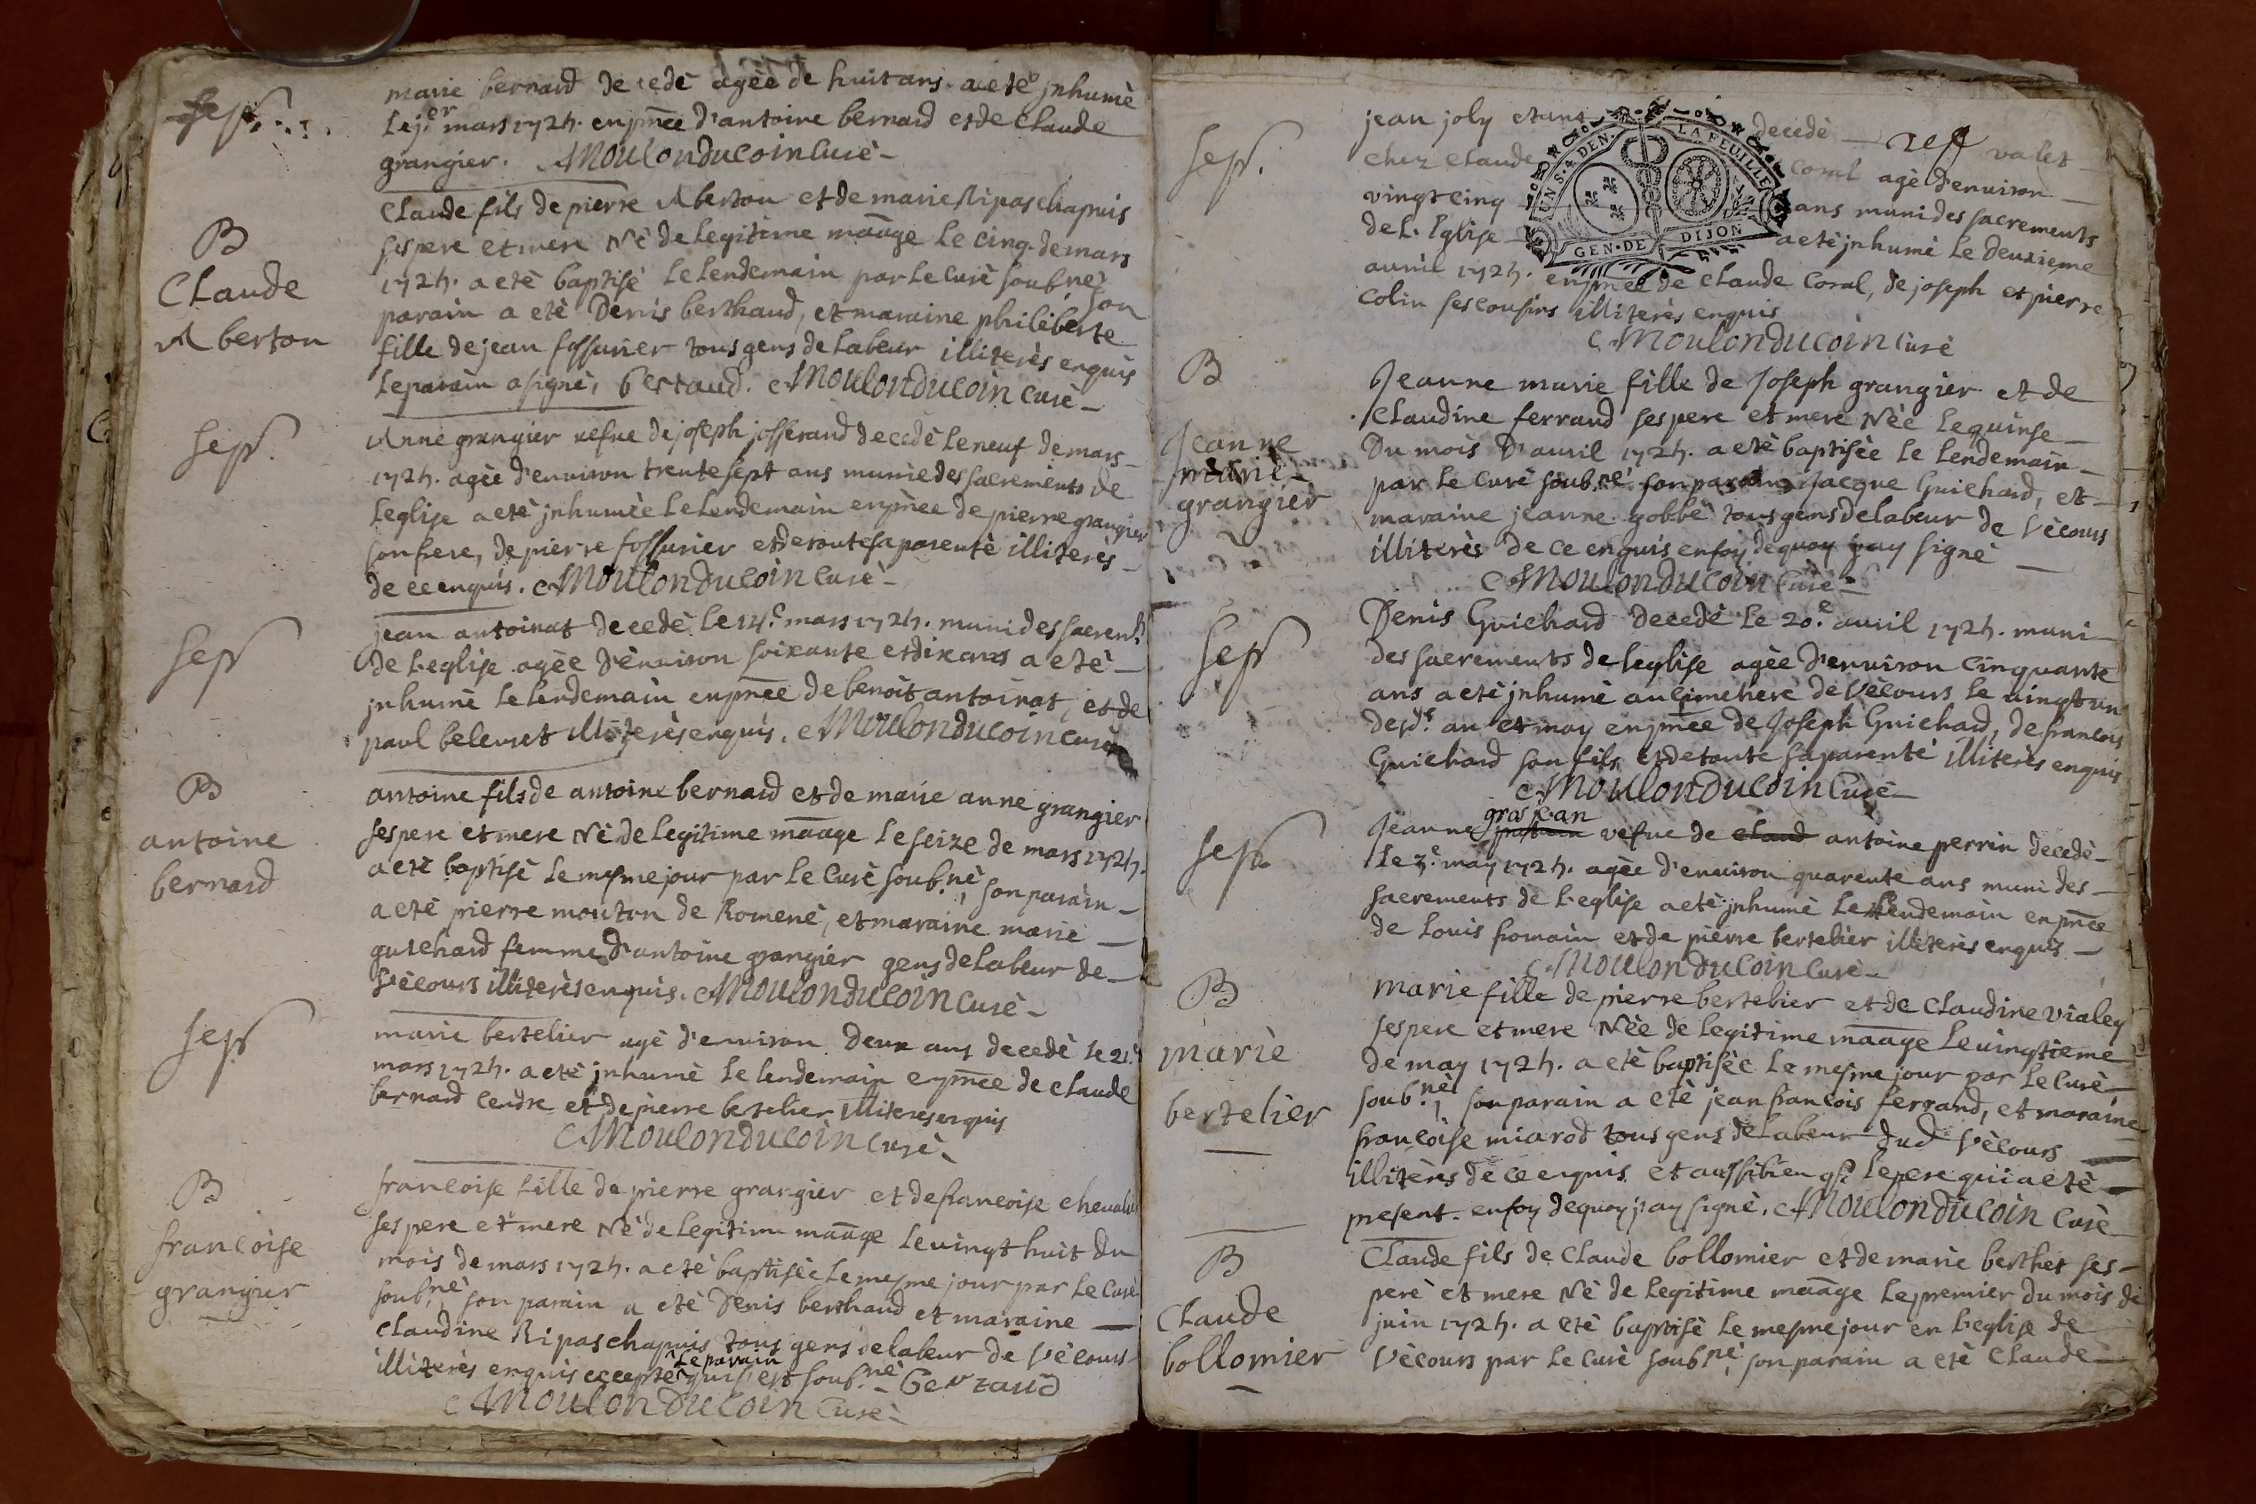 sep.
marie bernard decedé agée de huit ans a eté jnhumé
Le j.er mars 1724. en pnce d'antoine bernard et de Claude
grangier. Moulonducoin Curé
B
Claude
Aberton
Claude fils de pierre Aberton et de marie Ripaschapuis
ses pere et mere Né de legitime maage Le cinq de mars
1724. a eté baptisé Le Lendemain par Le Curé soub.né son
parain a eté Denis berthaud, et maraine philiberte
fille de jean fossurier tous gens de Labeur illiterès enquis
Le parain a signé, bertaud. Moulonducoin Curé
sep.
Anne grangier vefue de joseph josserand decedé Le neuf de mars
1724. agée d'enuiron trente sept ans munie des sacrements de
L'eglise a eté jnhumée Le Lendemain en pnce de pierre grangier
son frere, de pierre fossurier et de toute sa parenté illiterès
de ce enquis. Moulonducoin Curé
sep
jean antoinat decedé Le 14.e mars 1724. muni des sacrem.ts
de L'eglise agée d'enuiron soixante et dix ans a eté
jnhumé Le Lendemain en pnce de benoit antoinat, et de
paul beleuret illiterès enquis. Moulonducoin Curé
B
antoine
bernard
antoine fils de antoine bernard et de marie anne grangier
ses pere et mere Né de Legitime maage Le seize de mars 1724.
a eté baptisé Le mesme jour par Le Curé soub.né son parain
a eté pierre mouton de Romené, et maraine marie
guichard femme d'antoine grangier gens de Labeur de
Vécours illiterès enquis. Moulonducoin Curé
sep
marie bertelier agé d'enuiron deux ans decedé Le 21.e
mars 1724. a eté jnhumé Le lendemain en pnce de Claude
bernard et de pierre bertelier illiterès enquis
Moulonducoin Curé
B
francoise
grangier
francoise fille de pierre grangier et de francoise cheualier
ses pere et mere Né de Legitime maage Le vingt huit du
mois de mars 1724. a eté baptisée Le mesme jour par Le Curé
soub.né son parain a eté Denis berthaud et maraine
Claudine Ripaschapuis tous gens de labeur de Vécours
illiterès enquis eccepté Le parain qui s'est soub.né bertaud
Moulonducoin Curé
GEN. DE DIJON
UN S. 4 DEN. LA FEUILLE
sep.
jean joly etant decedé valet
chez Claude Coral agé d'enuiron
vingt cinq ans muni des sacrements
de L'Eglise a eté jnhumé Le deuxieme
auril 1724. en pnce de Claude Coral, de joseph et pierre
Colin ses cousins illiterès enquis
Moulonducoin Curé
B
Jeanne
marie
grangier
Jeanne marie fille de Joseph grangier et de
Claudine ferrand ses pere et mere Née Le quinse
Du mois D'auril 1724. a eté baptisée Le Lendemain
par Le Curé soub.né son parain Jacque Guichard, et
maraine jeanne gobbé tous gens de labeur de Vécours
illiterès de ce enquis en foy de quoy jay signé
Moulonducoin Curé
sep
Denis Guichard decedé Le 20.e auril 1724. muni
des sacrements de leglise agée d'enuiron cinquante
ans a eté jnhumé au Cimetiere de Vécours Le vingt un
desd.s an et moy en pnce de Joseph Guichard, de francois
Guichard son fils, et de toute sa parenté illiterès enquis
Moulonducoin Curé
sep.
Jeanne gros jean vefue de Claud antoine perrin decedé
Le 3.e may 1724. agée d'enuiron quarente ans muni des
sacrements de L'eglise a eté jnhumé Le Lendemain en pnce
de Louis fromain et de pierre bertelier illiterès enquis
Moulonducoin Curé
B
marie
bertelier
Marie fille de pierre bertelier et de Claudine vialey
ses pere et mere Née de Legitime maage Le vingtieme
de may 1724. a eté baptisée Le mesme jour par Le Curé
soub.né, son parain a eté jean francois ferrand, et maraine
francoise miarod tous gens de Labeur dud Vécours
illiterès de ce enquis et aussi bien q. Le pere qui a eté
present. en foy de quoy j'ay signé. Moulonducoin Curé
B
Claude
bollomier
Claude fils de Claude bollomier et de marie berthet ses
pere et mere Né de Legitime maage Le premier du mois de
juin 1724. a eté baptisé Le mesme jour en L'eglise de
Vécours par Le Curé soub.né, son parain a eté Claude